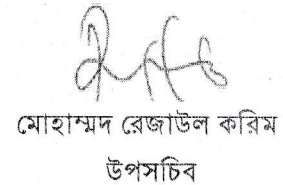 মোহাম্মদ রেজাউল করিম
উপসচিব